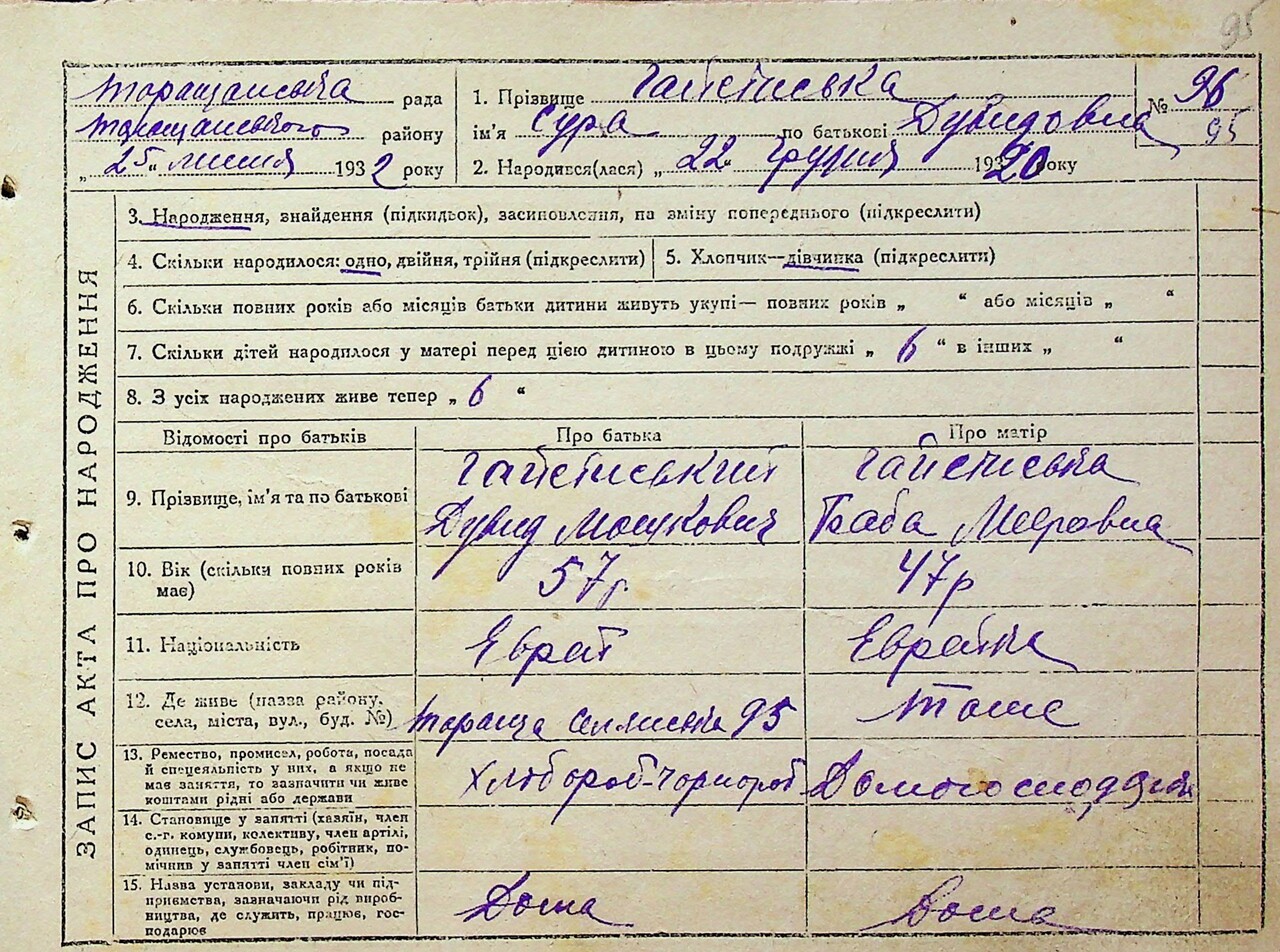 95
Таращанська рада
Таращанського району
„ 25 “ липня 1932 року
1. Прізвище Гайсинська
ім'я Сура по батькові Дувидовна
2. Народився(лася) „ 22 “ Грудня 1920 року
№ 96
95
ЗАПИС АКТА ПРО НАРОДЖЕННЯ
3. Народження, знайдення (підкидьок), засиновлення, на зміну попереднього (підкреслити)
4. Скільки народилося: одно, двійня, трійня (підкреслити)
5. Хлопчик—дівчинка (підкреслити)
6. Скільки повних років або місяців батьки дитини живуть укупі— повних років „ “ або місяців „ “
7. Скільки дітей народилося у матері перед цією дитиною в цьому подружжі „ 6 “ в інших „ “
8. З усіх народжених живе тепер „ 6 “
Відомості про батьків
Про батька
Про матір
9. Прізвище, ім'я та по батькові
Гайсинський
Дувид Мошкович
Гайсинська
Баба Меєровна
10. Вік (скільки повних років
має)
57 г.
47 р
11. Національність
Єврей
Єврейка
12. Де живе (назва району,
села, міста, вул., буд. №)
Тараща Селянська 95
Тоше
13. Ремество, промисел, робота, посада
й спецеяльність у них, а якщо не
має заняття, то зазначити чи живе
коштами рідні або держави
Хлібороб-чорнороб
14. Становище у занятті (хазяїн, член
с.-г. комуни, колективу, член артілі,
одинець, службовець, робітник, по-
мічник у занятті член сім'ї)
15. Назва установи, закладу чи під-
приємства, зазначаючи рід вироб-
ництва, де служить, працює, гос-
подарює
Дома
Дома